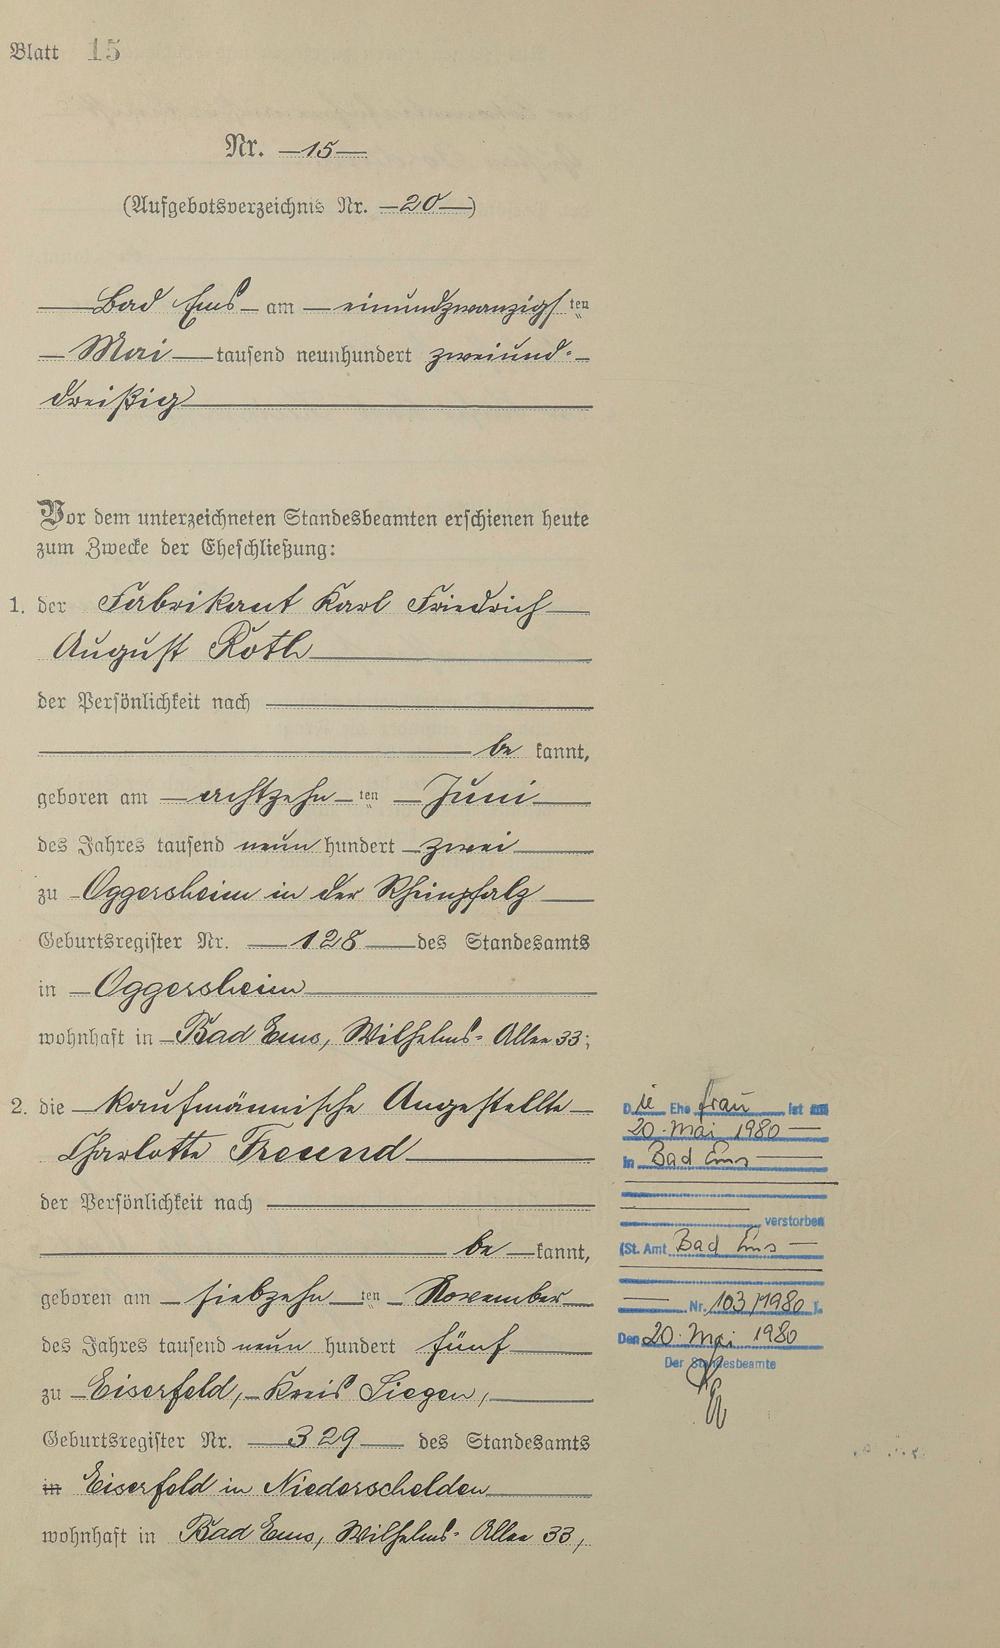 Blatt 15
Nr. —15—
(Aufgebotsverzeichnis Nr. —20—)
Bad Ems am einundzwanzigsten
Mai tausend neunhundert zweiund-
dreißig
Vor dem unterzeichneten Standesbeamten erschienen heute
zum Zwecke der Eheschließung:
1. der Fabrikant Karl Friedrich
August Roth
der Persönlichkeit nach
be kannt,
geboren am achtzehnten Juni
des Jahres tausend neun hundert zwei
zu Oggersheim in der Rheinpfalz
Geburtsregister Nr. 128 des Standesamts
in Oggersheim
wohnhaft in Bad Ems, Wilhelms-Allee 33;
2. die kaufmännische Angestellte
Charlotte Freund
der Persönlichkeit nach
be kannt,
geboren am siebzehnten November
des Jahres tausend neun hundert fünf
zu Eiserfeld, Kreis Siegen,
Geburtsregister Nr. 329 des Standesamts
in Eiserfeld in Niederschelden
wohnhaft in Bad Ems, Wilhelms-Allee 33,
Die Ehefrau ist am
20. Mai 1980
in Bad Ems
verstorben
(St. Amt Bad Ems
Nr. 103/1980).
Den 20. Mai 1980
Der Standesbeamte